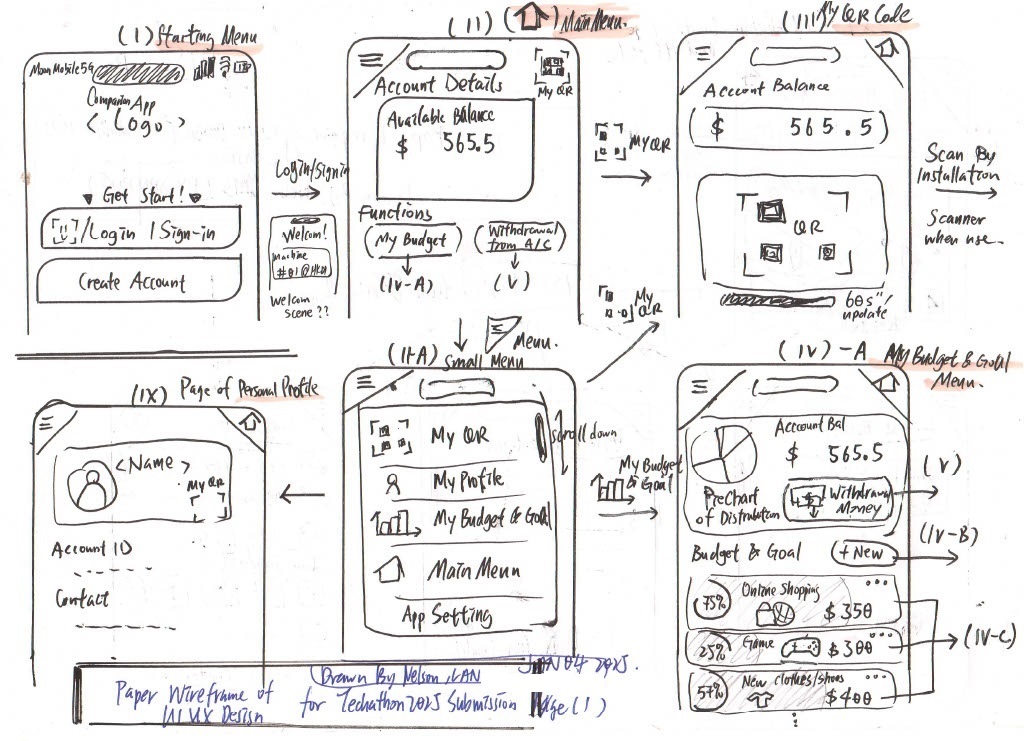 (I) Starting Menu
Moon Mobile 5G
Companion App
< Logo >
Get Start!
/Login / Sign-in
Create Account
Login/Signin
Welcome!
Machine
#01@HKDI
Welcom
scene ??
(II) Main Menu.
My QR
Account Details
Available Balance
$ 565.5
Functions
My Budget
(IV-A)
Withdrawal
from A/C
(V)
My QR
(III) My QR Code
Account Balance
$ 565.5
QR
60s"/
update
Scan By
Installation
Scanner
when use.
(IX) Page of Personal Profile
<Name>
My QR
Account ID
Contact
Menu.
(II-A) Small Menu
My QR
My Profile
My Budget & Goal
Main Menu
App Setting
scroll down
My
QR
My Budget
& Goal
(IV)-A My Budget & Goal
Menu.
Account Bal
$ 565.5
PieChart
of Distribution
Withdraw
Money
(V)
Budget & Goal
+ New
(IV-B)
75%
Online Shopping
$350
25%
Game
$300
57%
New clothes/shoes
$400
(IV-C)
Paper Wireframe of
UI UX Design
Drawn By Nelson, LAN
for Techathon 2025 Submission
JAN 04 2025.
Page (1)